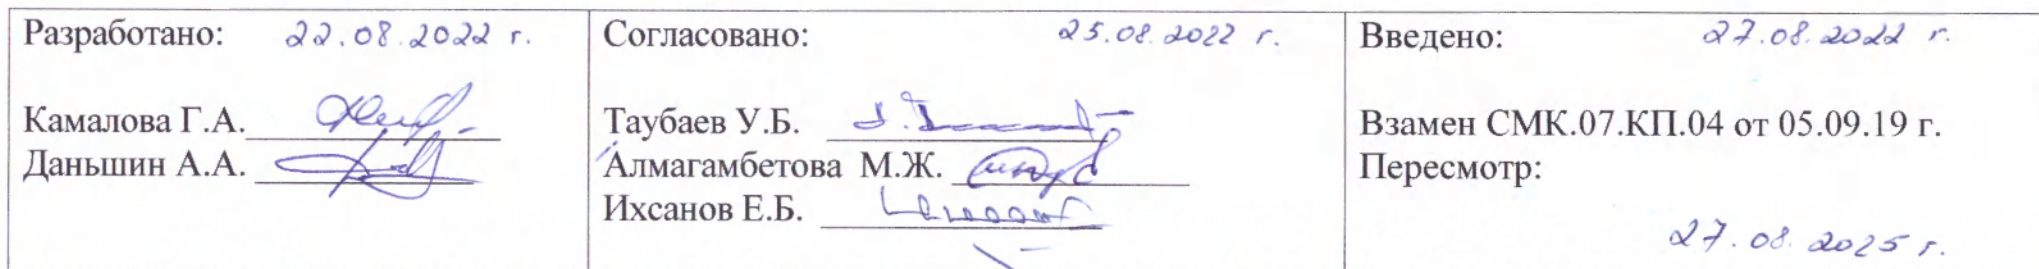 Разработано: 22.08.2022 г.
Камалова Г.А.
Даньшин А.А.
Согласовано: 25.08.2022 г.
Таубаев У.Б.
Алмагамбетова М.Ж.
Ихсанов Е.Б.
Введено: 27.08.2022 г.
Взамен СМК.07.КП.04 от 05.09.19 г.
Пересмотр:
27.08.2025 г.